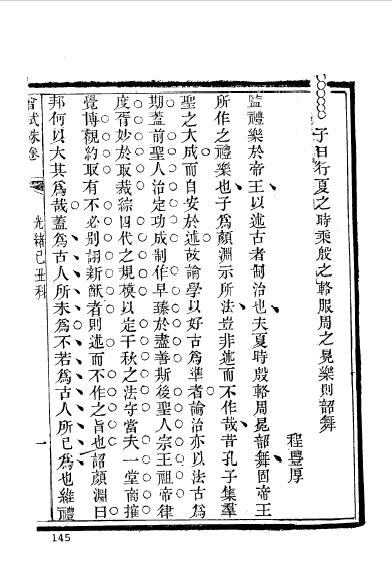 子曰行夏之時乘殷之輅服周之冕樂則韶舞
程豐厚
監禮樂於帝王以述古者制治也夫夏時殷輅周冕韶舞固帝王
所作之禮樂也子為顏淵示所法豈非述而不作哉昔孔子集羣
聖之大成而自安於述故論學以好古為準者論治亦以法古為
期蓋前聖人治定功成制作早臻於盡善斯後聖人宗王祖帝律
度胥妙於取裁綜四代之規模以定千秋之法守當夫一堂商摧
覺博觀約取有不必別詡新猷者則述而不作之旨也詔顏淵曰
邦何以大其為哉蓋為古人所未為不若為古人所已為也維禮
會試硃卷
光緒己丑科
一
145